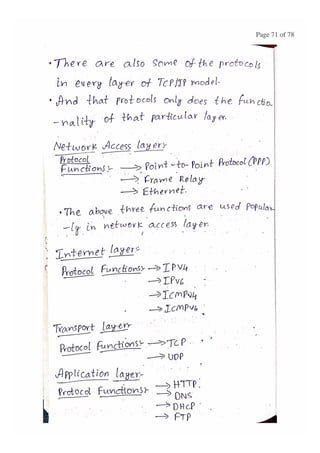 Page 71 of 78
• There are also some of the protocols
in every layer of TCP/IP model.
• And that protocols only does the functio
-nality of that particular layer.
Network Access layer:-
Protocol
Functions:- → Point-to-Point Protocol (PPP)
→ Frame Relay
→ Ethernet.
• The above three functions are used popular
-ly in network access layer.
Internet layer:-
Protocol Functions:- → IPV4
→ IPv6
→ ICMPV4
→ ICMPV6
Transport layer:-
Protocol Functions:- → TCP
→ UDP
Application layer:-
Protocol Functions:- → HTTP.
→ DNS
→ DHCP
→ FTP